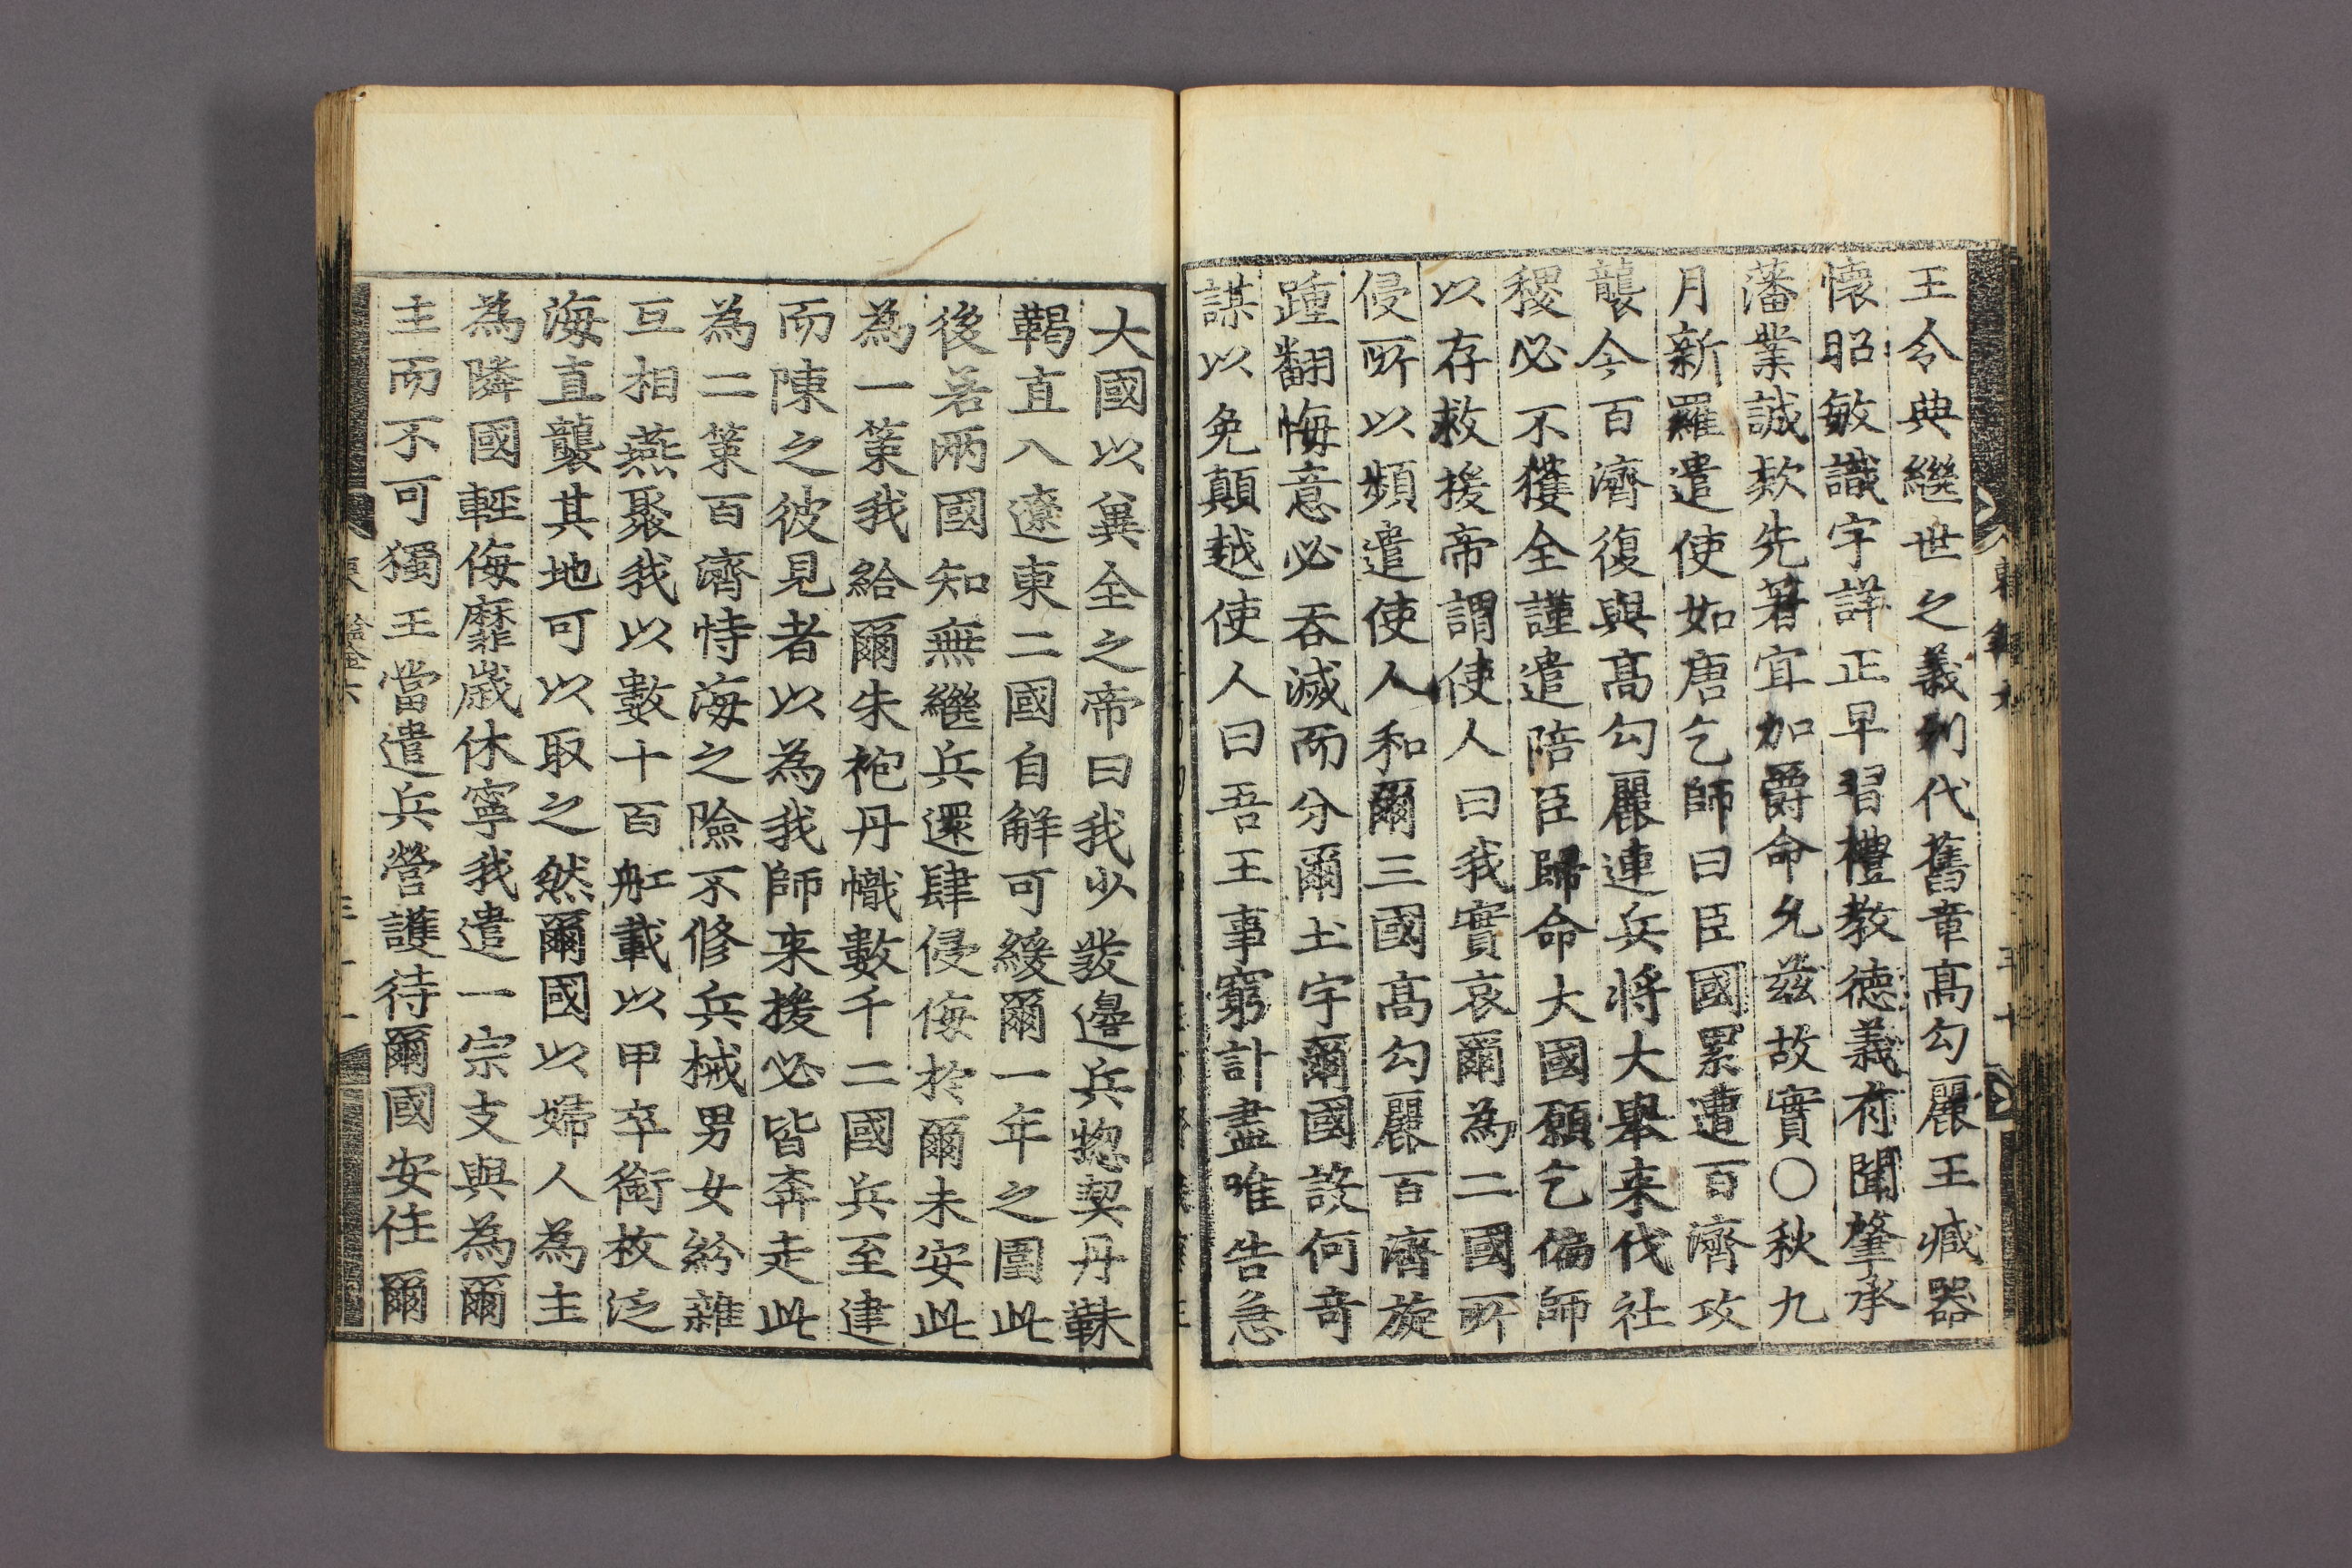 王令典繼世之義列代舊章高勾麗王臧器
懷昭敏識宇詳正早習禮敎德義有聞肇承
藩業誠款先著宜加爵命允玆故實○秋九
月新羅遣使如唐乞師曰臣國累遭百濟攻
襲今百濟復與高勾麗連兵將大擧来伐社
稷必不獲全謹遣陪臣歸命大國願乞偏師
以存救援帝謂使人曰我實哀爾為二國所
侵所以頻遣使人和爾三國高勾麗百濟旋
踵翻悔意必吞滅而分爾土宇爾國設何奇
謀以免顛越使人曰吾王事窮計盡唯告急
大國以兾全之帝曰我少發邊兵摠契丹靺
鞨直入遼東二國自解可緩爾一年之圍此
後若兩國知無繼兵還肆侵侮於爾未安此
為一策我給爾朱袍丹幟數千二國兵至建
而陳之彼見者以為我師来援必皆奔走此
為二策百濟恃海之險不修兵械男女紛雜
互相燕聚我以數十百舡載以甲卒銜枚泛
海直襲其地可以取之然爾國以婦人為主
為隣國輕侮靡歲休寧我遣一宗支與為爾
主而不可獨王當遣兵營護待爾國安任爾